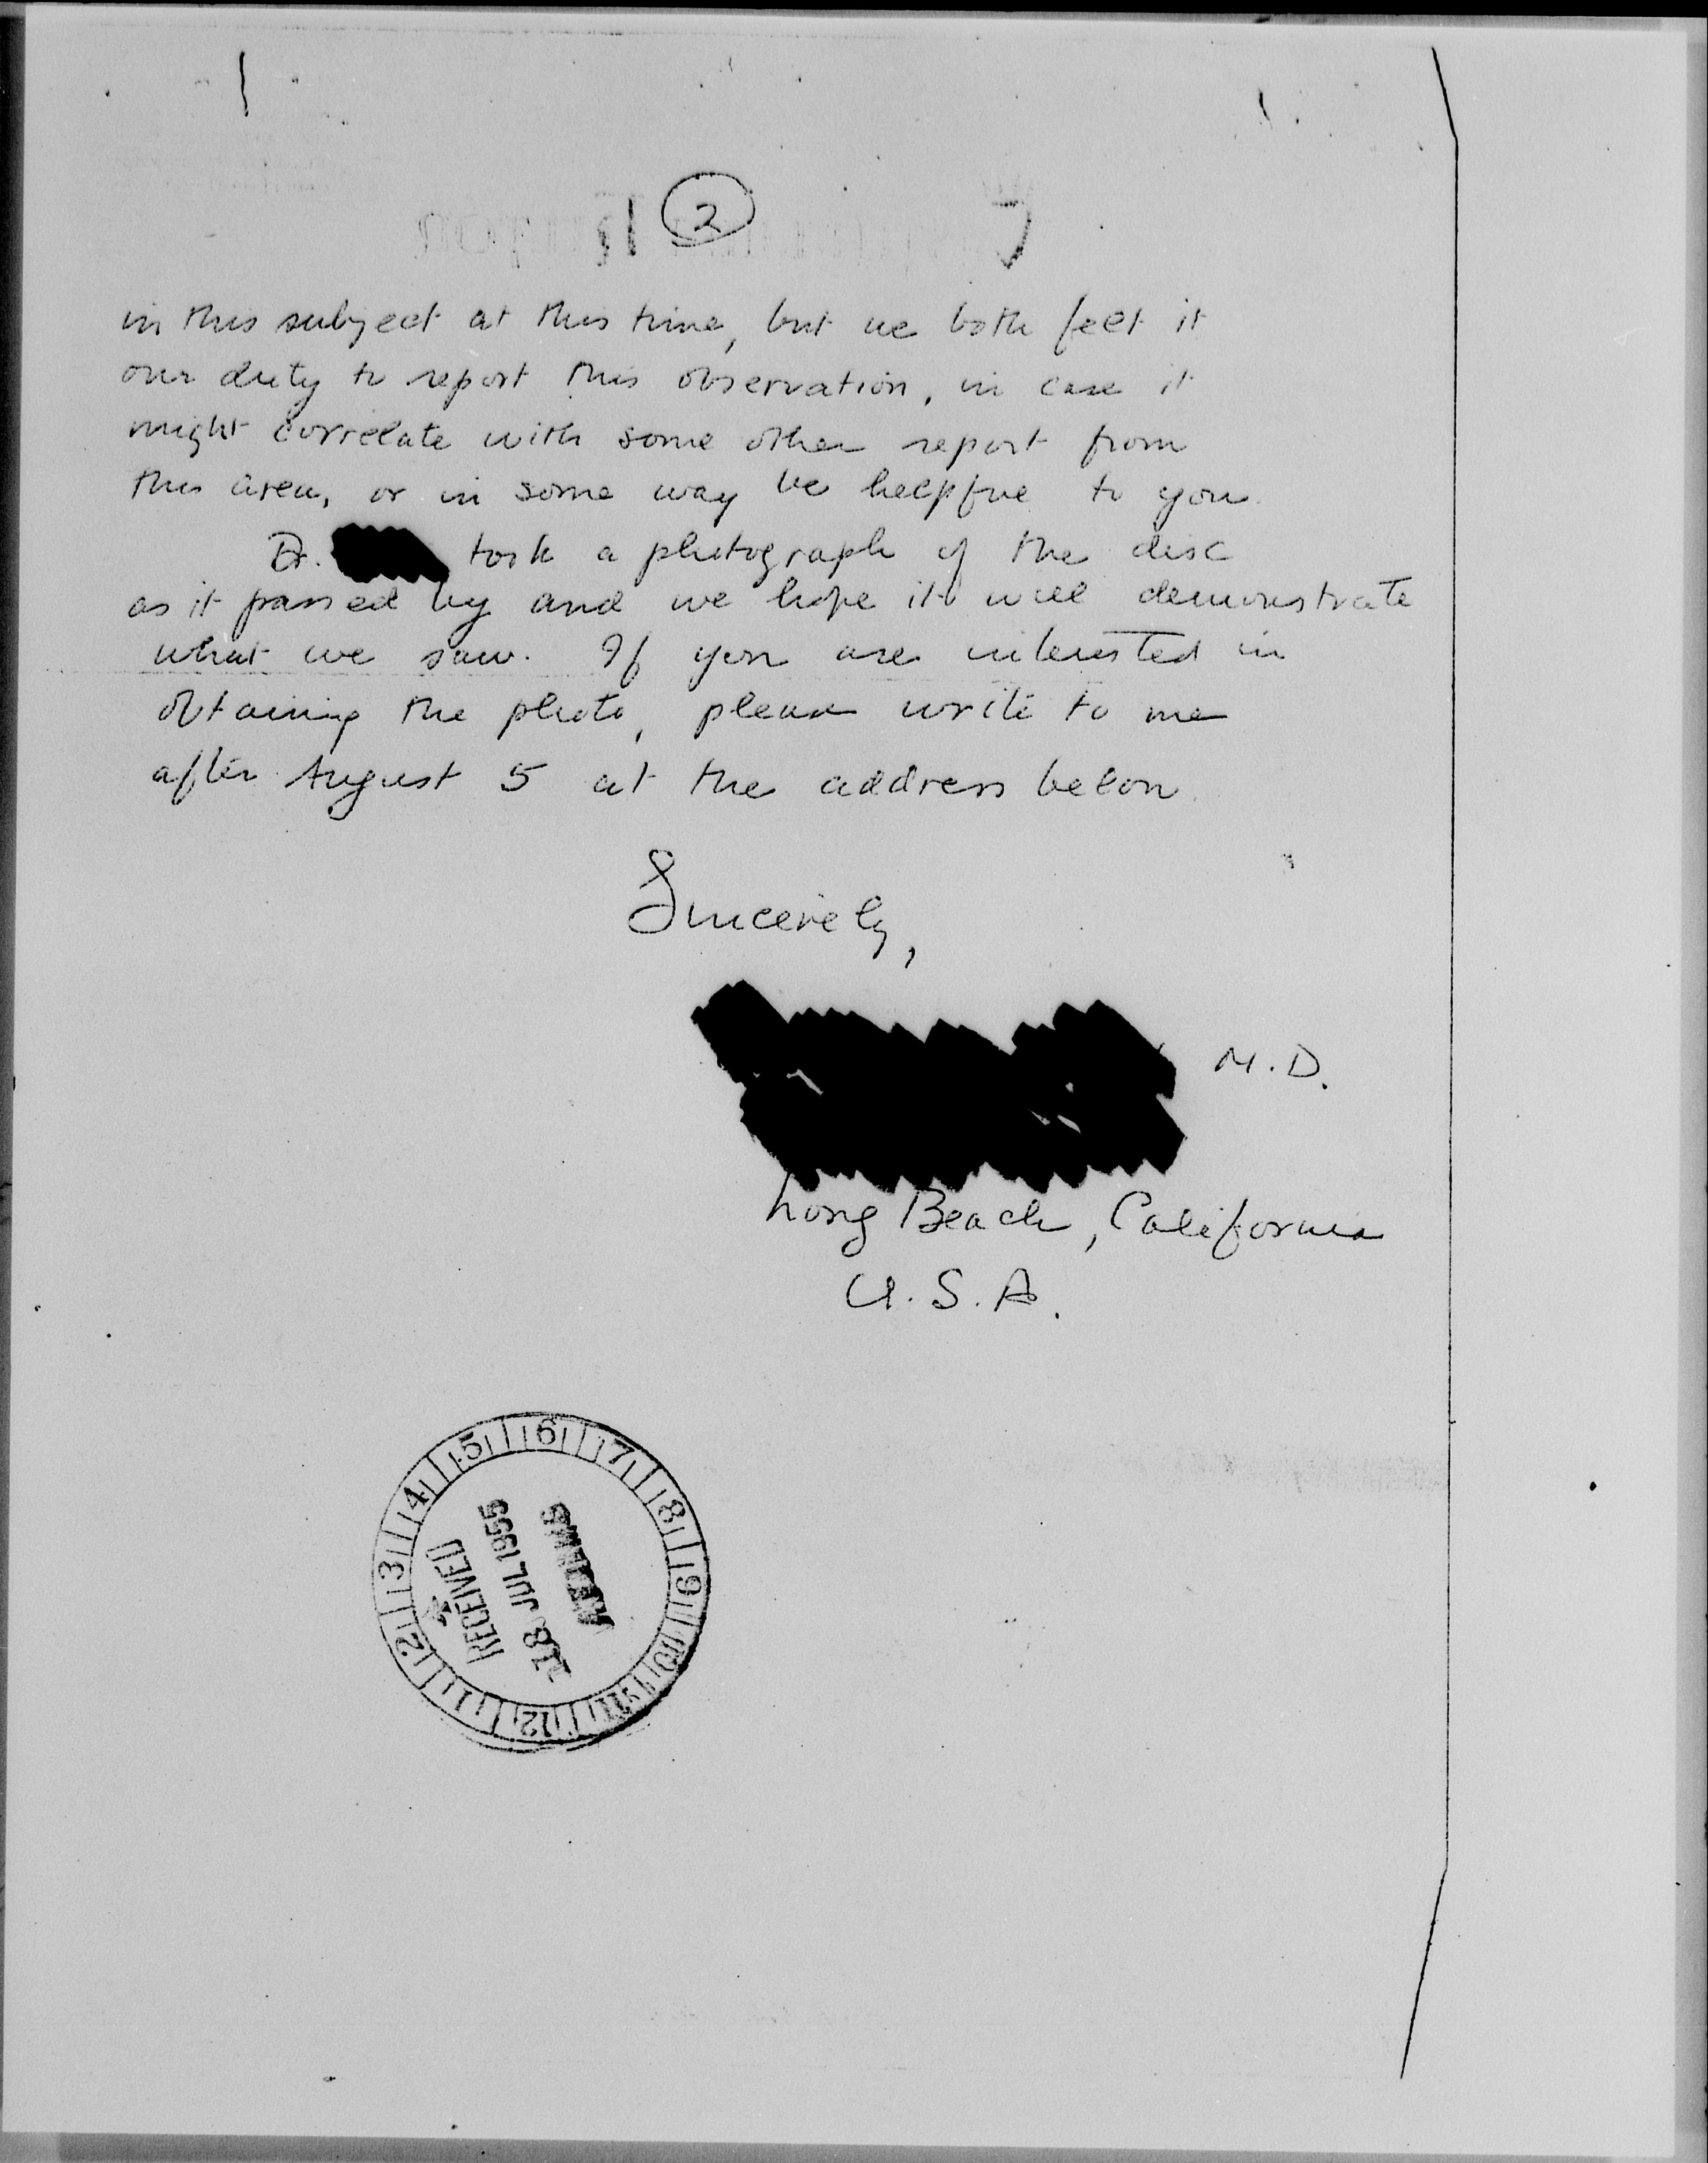 2
in this subject at this time, but we both felt it
our duty to report this observation, in case it
might correlate with some other report from
this area, or in some way be helpful to you.
Dr. took a photograph of the disc
as it passed by and we hope it will demonstrate
what we saw. If you are interested in
obtaining the photo, please write to me
after August 5 at the address below.
Sincerely,
M.D.
Long Beach, California
U.S.A.
1 2 3 4 5 6 7 8 9 10 11 12
RECEIVED
18 JUL 1955